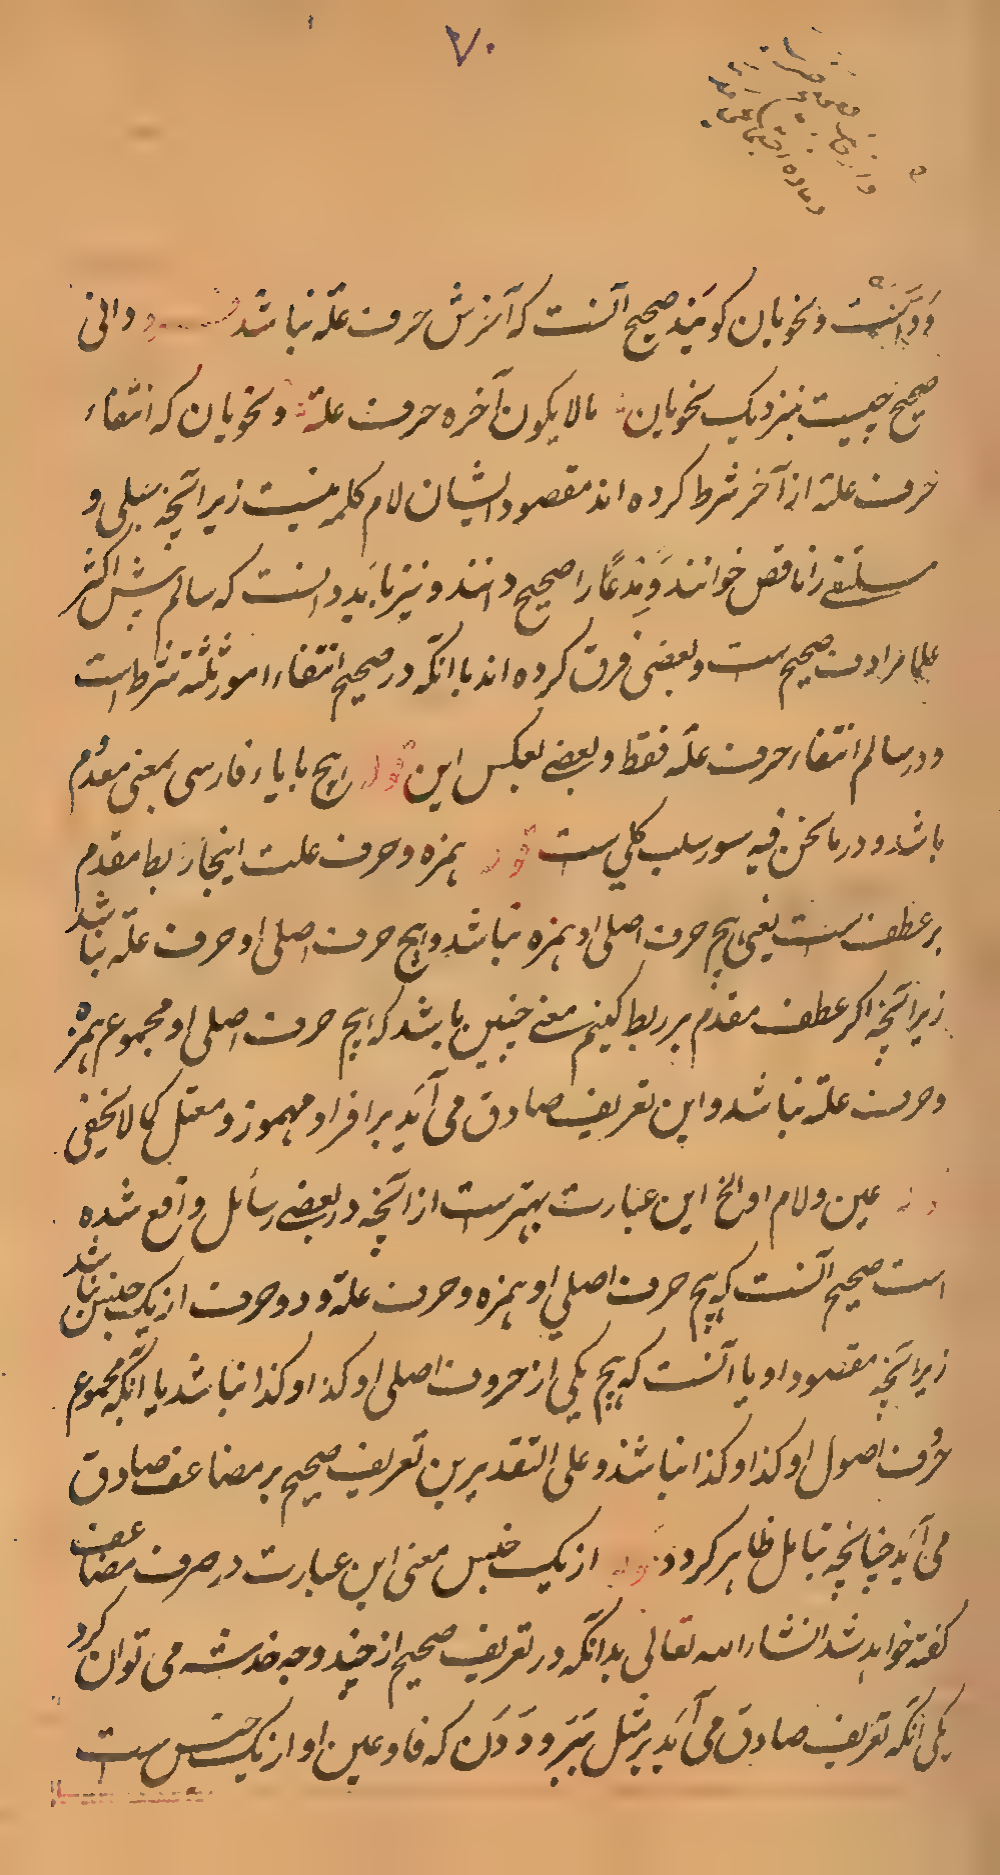 ۷۰
و نحویان کویند صحیح آنست که آخرش حرف علّه نباشد دانی
صحیح چیست نزدیک نحویان مالایکون آخره حرف علة و نحویان که انتفاء
حرف علة از آخر شرط کرده اند مقصود ایشان لام کلمه نیست زیرا آنچه سلقی و
مسلنقی را ناقص خوانند و ندعا را صحیح دانند و نیز باید دانست که سالم پیش اکثر
علما مرادف صحیح ست و بعضی فرق کرده اند با آنکه در صحیح انتفاء امور ثلثة شرط است
و در سالم انتفاء حرف علّه فقط و بعضے بعکس این قوله ایچ با یاء فارسی بمعنی معدُم
باشد و در ما نحن فیه سور سلب کلی ست قوله همزه و حرف علت اینجا ربط مقدم
بر عطف ست یعنی ایچ حرف اصلی او همزه نباشد و ایچ حرف اصلی او حرف علّه نباشد
زیرا آنچه اکر عطف مقدم بر ربط کنیم معنے چنین باشد که ایچ حرف اصلی او مجموع همزه
و حرف علّة نباشد و این تعریف صادق می آید بر افراد مهموز و معتل کما لا یخفی
عین و لام او الخ این عبارت بهترست از آنچه در بعضے رسائل واقع شده
است صحیح آنست که هیچ حرف اصلی او همزه و حرف علة و دو حرف از یک جنس نباشد
زیرا آنچه مقصود او یا آنست که هیچ یکی از حروف اصلی او کذا و کذا نباشد یا آنکه مجموع
حُرف اصول او کذا و کذا نباشد و علی التقدیرین تعریف صحیح بر مضاعف صادق
می آید چنانچه بتأمل ظاهر کردد قوله از یک جنس معنی این عبارت در حرف مضاعف
کفته خواهد شد انشاء الله تعالی بدانکه در تعریف صحیح از چند وجه خدشه می توان کرد
یکی آنکه تعریف صادق می آید بر مثل بَبَر و دَدَن که فا و عین او از یک جنس ست